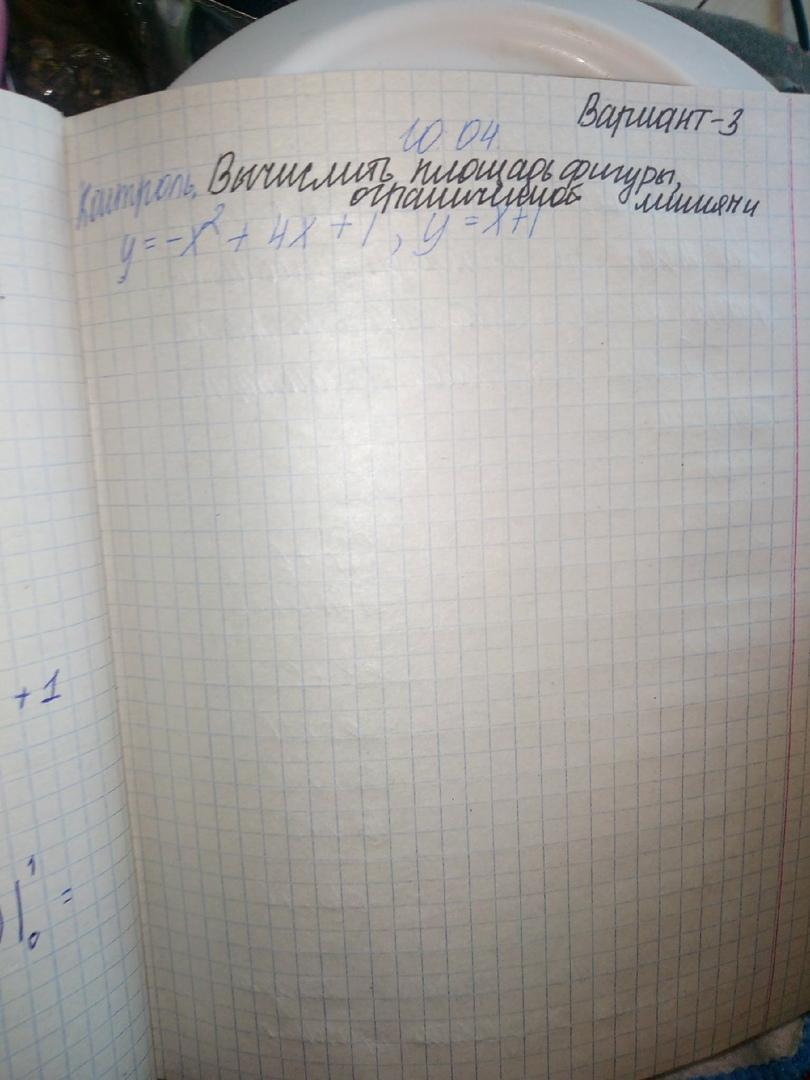 Вариант-3
10.04.
Контроль. Вычислить площадь фигуры,
ограниченной линиями
y = -x² + 4x + 1, y = x+1
+ 1
)|₀¹ =